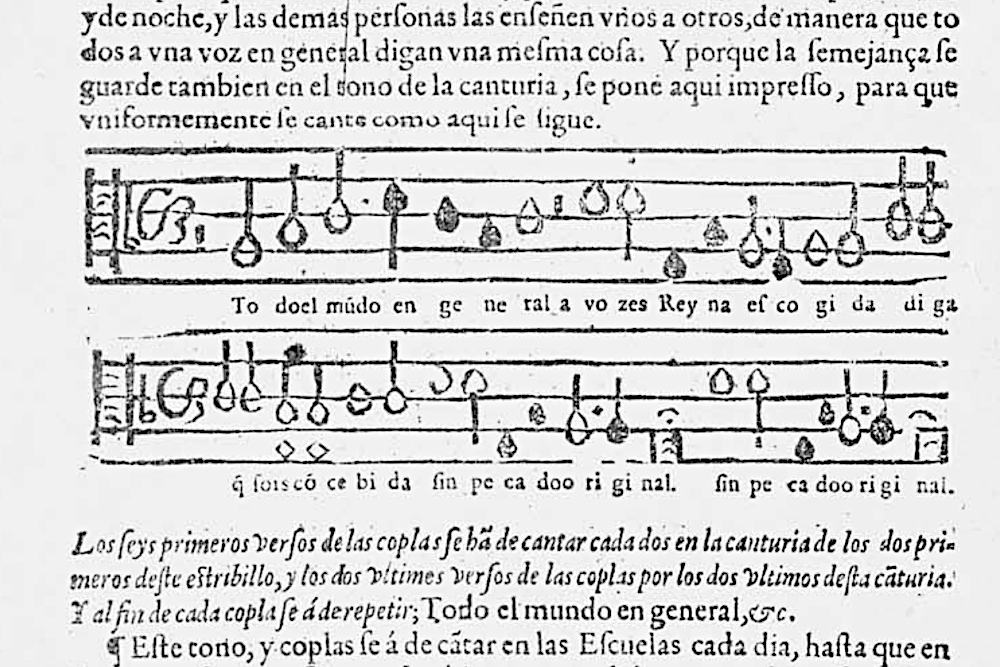 y de noche, y las demas perſonas las enſeñen vnos a otros, de manera que to
dos a vna voz en general digan vna meſma coſa. Y porque la ſemejança ſe
guarde tambien en el tono de la canturia, ſe pone aqui impreſſo, para que
vniformemente ſe cante como aqui ſe ſigue.
To doel múdo en ge ne ral a vo zes Rey na eſ co gi da di ga
q̃ ſois có ce bi da ſin pe ca doo ri gi nal. ſin pe ca doo ri gi nal.
Los ſeys primeros verſos de las coplas ſe hã de cantar cada dos en la canturia de los dos pri-
meros deſte eſtribillo, y los dos vltimos verſos de las coplas por los dos vltimos deſta cãturia.
Y al fin de cada copla ſe á de repetir; Todo el mundo en general, &c.
¶ Eſte tono, y coplas ſe á de cãtar en las Eſcuelas cada dia, haſta que en